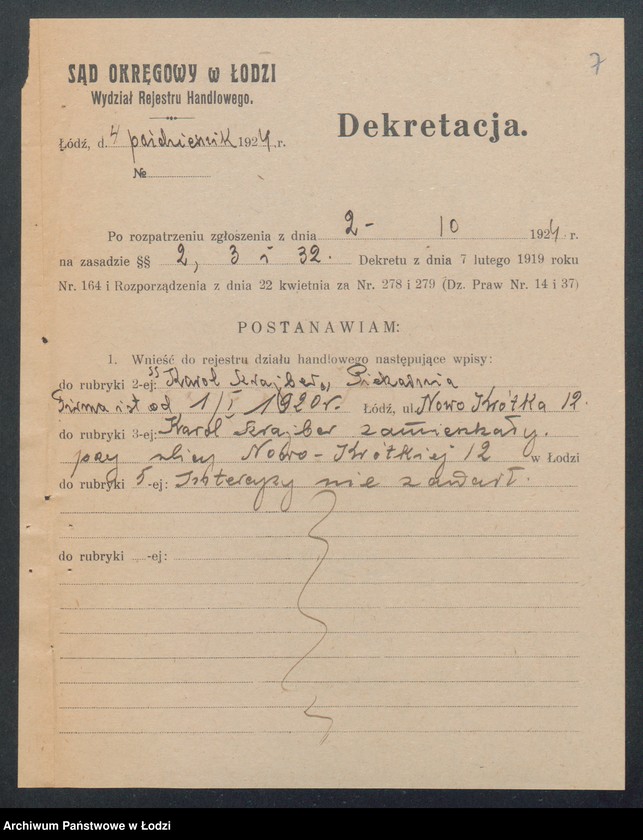 7
SĄD OKRĘGOWY w ŁODZI
Wydział Rejestru Handlowego.
Dekretacja.
Łódź, d. 4 październik 1924 r.
№
Po rozpatrzeniu zgłoszenia z dnia 2- 10 1924 r.
na zasadzie §§ 2, 3 i 32. Dekretu z dnia 7 lutego 1919 roku
Nr. 164 i Rozporządzenia z dnia 22 kwietnia za Nr. 278 i 279 (Dz. Praw Nr. 14 i 37)
POSTANAWIAM:
1. Wnieść do rejestru działu handlowego następujące wpisy:
do rubryki 2-ej: „Karol Szrajber", Piekarnia
Firma ist. od 1/I 1920 r. Łódź, ul. Nowo Krótka 12.
do rubryki 3-ej: Karol Szrajber zamieszkały.
przy ulicy Nowo-Krótkiej 12 w Łodzi
do rubryki 5-ej: Intercyzy nie zawarł.
do rubryki -ej:
Archiwum Państwowe w Łodzi